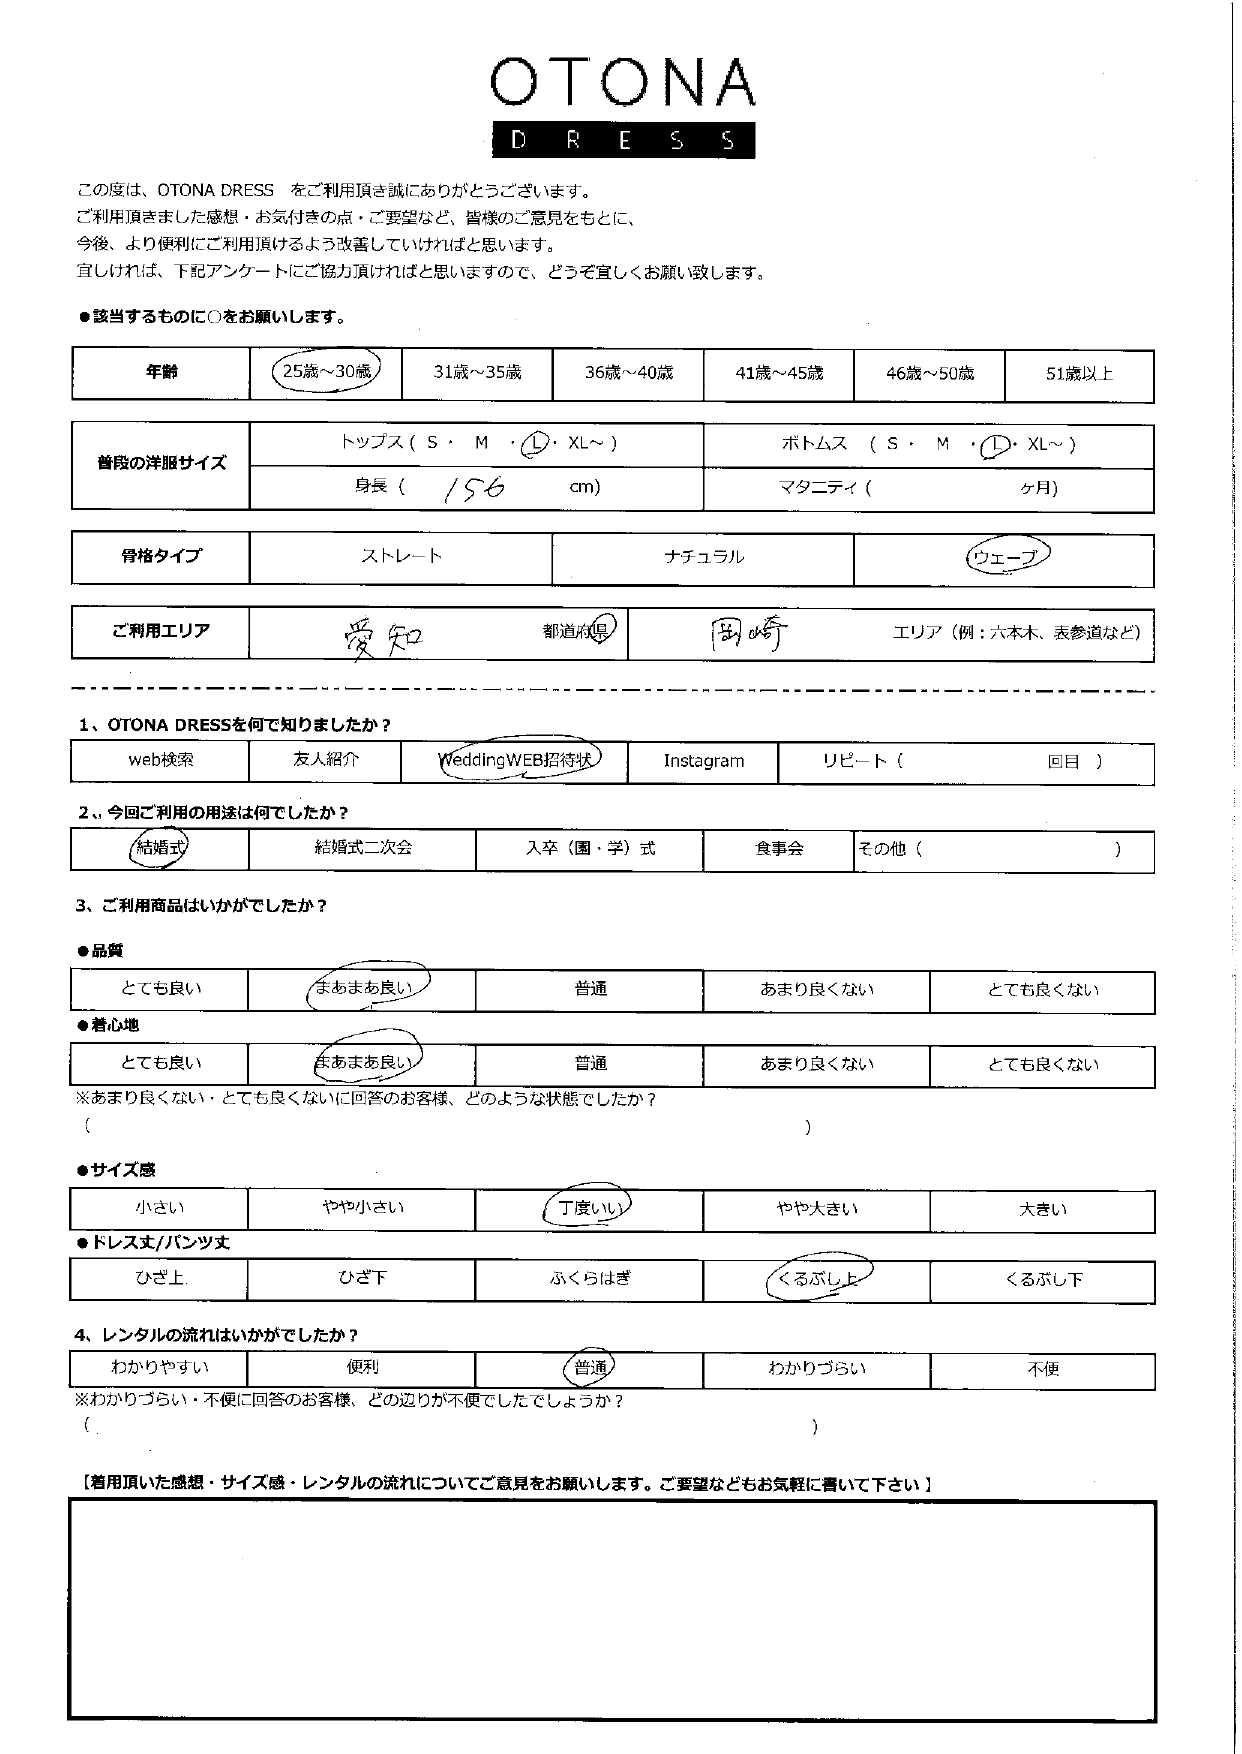 OTONA
DRESS
この度は、OTONA DRESS　をご利用頂き誠にありがとうございます。
ご利用頂きました感想・お気付きの点・ご要望など、皆様のご意見をもとに、
今後、より便利にご利用頂けるよう改善していければと思います。
宜しければ、下記アンケートにご協力頂ければと思いますので、どうぞ宜しくお願い致します。
●該当するものに○をお願いします。
年齢 25歳～30歳 31歳～35歳 36歳～40歳 41歳～45歳 46歳～50歳 51歳以上
普段の洋服サイズ
トップス ( S ・ M ・ L ・ XL～ ) ボトムス ( S ・ M ・ L ・ XL～ )
身長 ( 156 cm) マタニティ ( ケ月)
骨格タイプ ストレート ナチュラル ウェーブ
ご利用エリア 愛知 都道府県 岡崎 エリア（例：六本木、表参道など）
1、OTONA DRESSを何で知りましたか？
web検索 友人紹介 WeddingWEB招待状 Instagram リピート（ 回目 ）
2、、今回ご利用の用途は何でしたか？
結婚式 結婚式二次会 入卒（園・学）式 食事会 その他（ ）
3、ご利用商品はいかがでしたか？
●品質
とても良い まあまあ良い 普通 あまり良くない とても良くない
●着心地
とても良い まあまあ良い 普通 あまり良くない とても良くない
※あまり良くない・とても良くないに回答のお客様、どのような状態でしたか？
( )
●サイズ感
小さい やや小さい 丁度いい やや大きい 大きい
●ドレス丈/パンツ丈
ひざ上 ひざ下 ふくらはぎ くるぶし上 くるぶし下
4、レンタルの流れはいかがでしたか？
わかりやすい 便利 普通 わかりづらい 不便
※わかりづらい・不便に回答のお客様、どの辺りが不便でしたでしょうか？
( )
【着用頂いた感想・サイズ感・レンタルの流れについてご意見をお願いします。ご要望などもお気軽に書いて下さい】